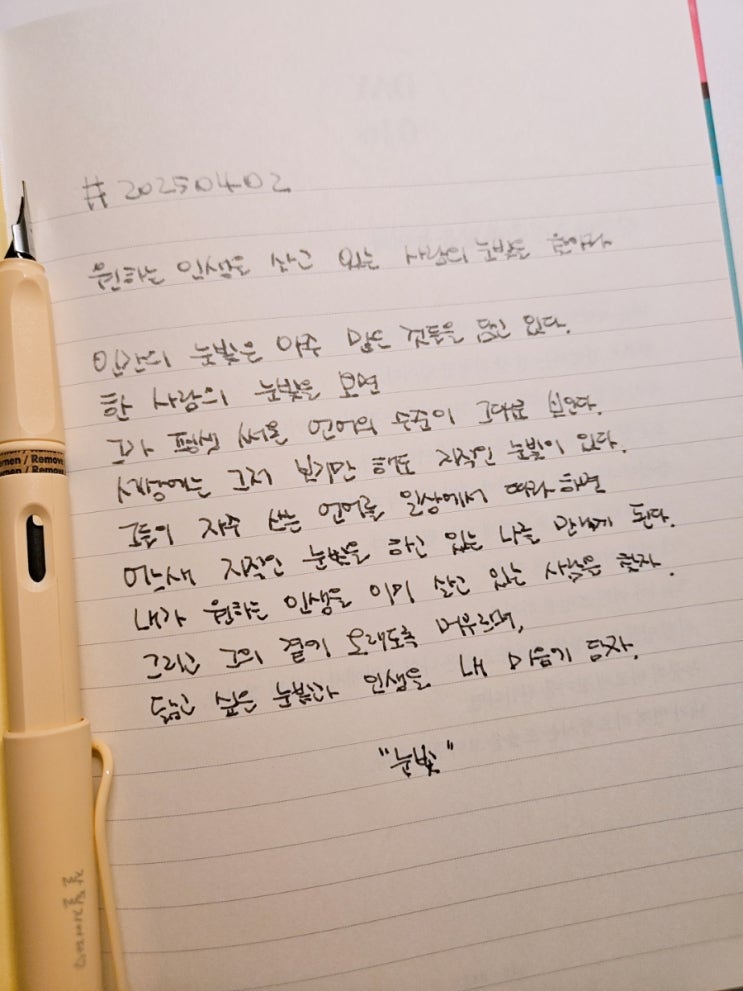 #20250402
원하는 인생을 살고 있는 사람의 눈빛을
인간의 눈빛은 아주 많은 것들을 담고 있다.
한 사람의 눈빛을 보면
그가 평생 써온 언어의 수준이 그대로
그저 보기만 해도 지적인 눈빛이 있다.
그들이 자주 쓰는 언어를 일상에서 따라하면
어느새 지적인 눈빛을 하고 있는 나를 만나게 된다.
내가 원하는 인생을 이미 살고 있는 사람을 찾자.
그리고 그의 곁에 오래도록 머물며,
닮고 싶은 눈빛과 인생을 내 마음에 담자.
"눈빛"
/ Remove
umen / Remove
men / Remove